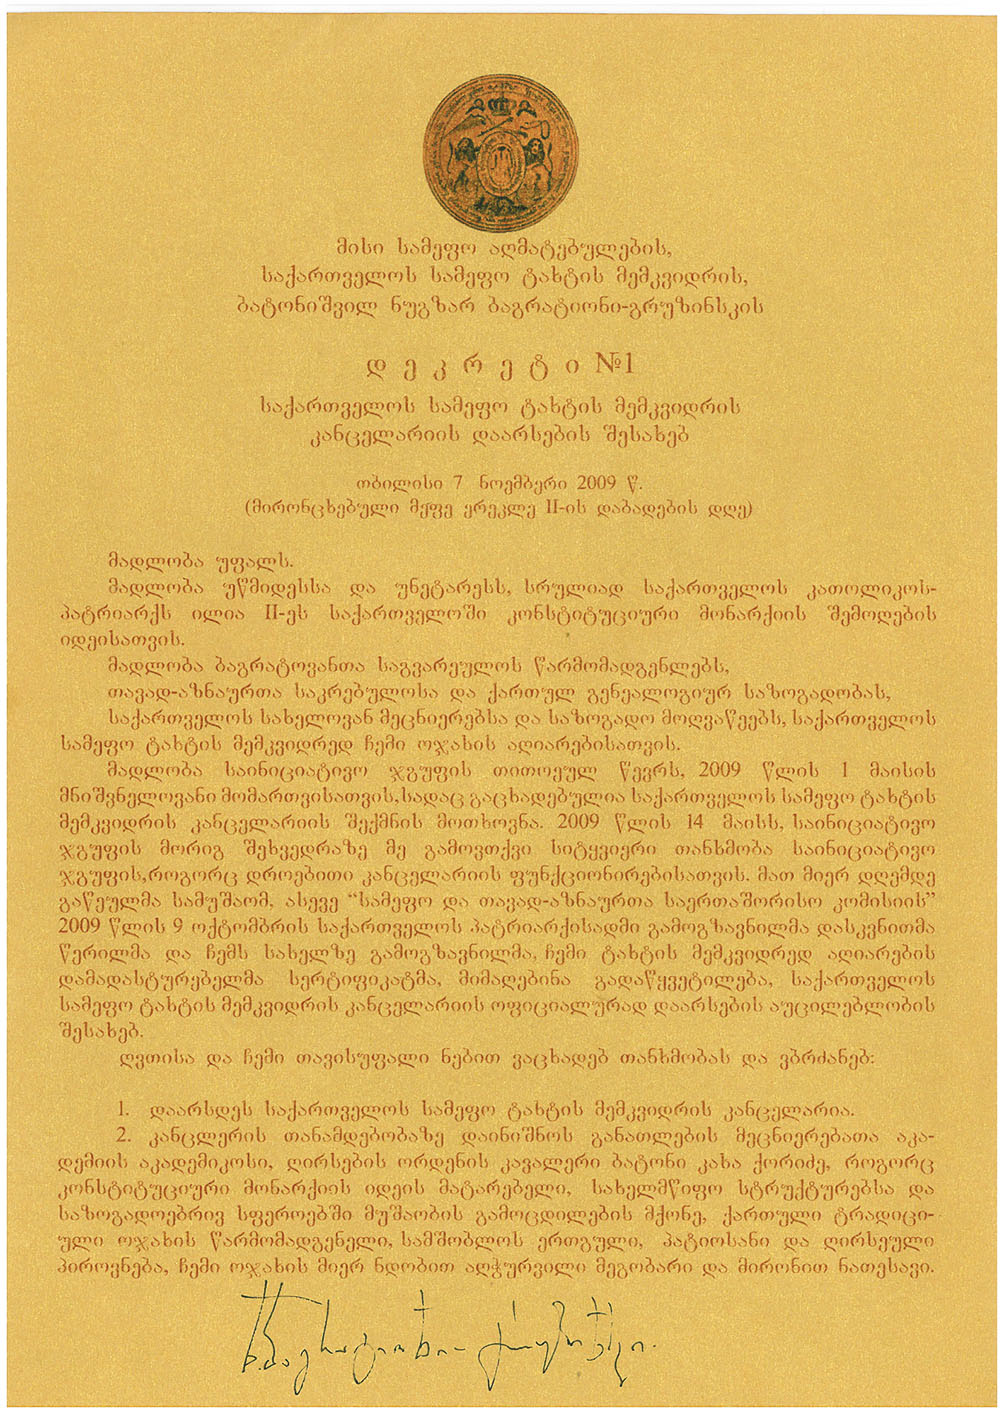 მისი სამეფო აღმატებულების,
საქართველოს სამეფო ტახტის მემკვიდრის,
ბატონიშვილ ნუგზარ ბაგრატიონი-გრუზინსკის
დ ე კ რ ე ტ ი №1
საქართველოს სამეფო ტახტის მემკვიდრის
კანცელარიის დაარსების შესახებ
თბილისი 7 ნოემბერი 2009 წ.
(მირონცხებული მეფე ერეკლე II-ის დაბადების დღე)
მადლობა უფალს.
მადლობა უწმიდესსა და უნეტარესს, სრულიად საქართველოს კათოლიკოს-
პატრიარქს ილია II-ეს საქართველოში კონსტიტუციური მონარქიის შემოღების
იდეისათვის.
მადლობა ბაგრატოვანთა საგვარეულოს წარმომადგენლებს,
თავად-აზნაურთა საკრებულოსა და ქართულ გენეალოგიურ საზოგადობას,
საქართველოს სახელოვან მეცნიერებსა და საზოგადო მოღვაწეებს, საქართველოს
სამეფო ტახტის მემკვიდრედ ჩემი ოჯახის აღიარებისათვის.
მადლობა საინიციატივო ჯგუფის თითოეულ წევრს, 2009 წლის 1 მაისის
მნიშვნელოვანი მომართვისათვის,სადაც გაცხადებულია საქართველოს სამეფო ტახტის
მემკვიდრის კანცელარიის შექმნის მოთხოვნა. 2009 წლის 14 მაისს, საინიციატივო
ჯგუფის მორიგ შეხვედრაზე მე გამოვთქვი სიტყვიერი თანხმობა საინიციატივო
ჯგუფის,როგორც დროებითი კანცელარიის ფუნქციონირებისათვის. მათ მიერ დღემდე
გაწეულმა სამუშაომ, ასევე “სამეფო და თავად-აზნაურთა საერთაშორისო კომისიის”
2009 წლის 9 ოქტომბრის საქართველოს პატრიარქისადმი გამოგზავნილმა დასკვნითმა
წერილმა და ჩემს სახელზე გამოგზავნილმა, ჩემი ტახტის მემკვიდრედ აღიარების
დამადასტურებელმა სერტიფიკატმა, მიმაღებინა გადაწყვეტილება, საქართველოს
სამეფო ტახტის მემკვიდრის კანცელარიის ოფიციალურად დაარსების აუცილებლობის
შესახებ.
ღვთისა და ჩემი თავისუფალი ნებით ვაცხადებ თანხმობას და ვბრძანებ:
1. დაარსდეს საქართველოს სამეფო ტახტის მემკვიდრის კანცელარია.
2. კანცლერის თანამდებობაზე დაინიშნოს განათლების მეცნიერებათა აკა-
დემიის აკადემიკოსი, ღირსების ორდენის კავალერი ბატონი კახა ქორიძე, როგორც
კონსტიტუციური მონარქიის იდეის მატარებელი, სახელმწიფო სტრუქტურებსა და
საზოგადოებრივ სფეროებში მუშაობის გამოცდილების მქონე, ქართული ტრადიცი-
ული ოჯახის წარმომადგენელი, სამშობლოს ერთგული, პატიოსანი და ღირსეული
პიროვნება, ჩემი ოჯახის მიერ ნდობით აღჭურვილი მეგობარი და მირონით ნათესავი.